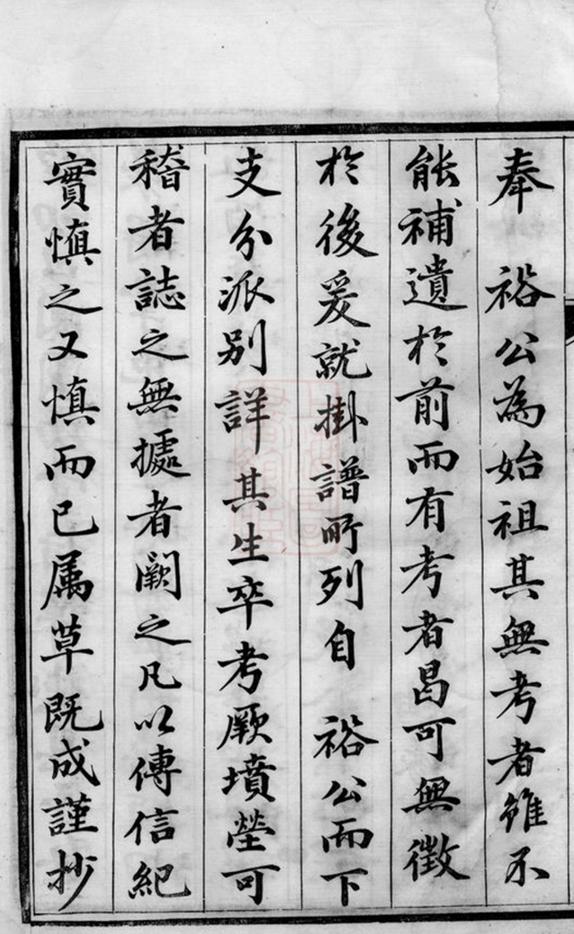 奉　裕公為始祖其無考者雖不
能補遺於前而有考者曷可無徵
於後爰就掛譜所列自　裕公而下
支分派別詳其生卒考厥墳塋可
稽者誌之無據者闕之凡以傳信紀
實慎之又慎而已属草既成謹抄